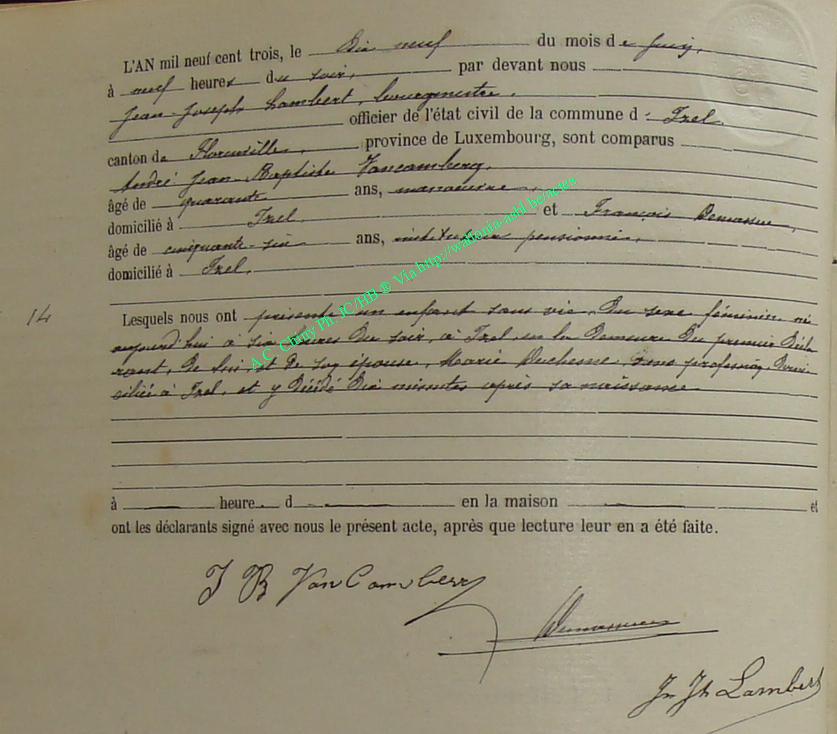 L'AN mil neuf cent trois, le dix neuf du mois de juin,
à neuf heures du soir, par devant nous
Jean-Joseph Lambert, bourgmestre,
officier de l'état civil de la commune d' Izel
canton de Florenville, province de Luxembourg, sont comparus
André Jean-Baptiste Vancamberg,
âgé de quarante ans, manoeuvre,
domicilié à Izel et François
âgé de cinquante-six ans, instituteur pensionné,
domicilié à Izel.
14
Lesquels nous ont présenté un enfant sans vie, du sexe féminin, né
aujourd'hui à six heures du soir, à Izel, en la demeure du premier décla
rant, de lui et de son épouse, Marie Duchesne, sans profession, domi
ciliée à Izel, et y décédé dix minutes après sa naissance
à heure d en la maison et
ont les déclarants signé avec nous le présent acte, après que lecture leur en a été faite.
J B VanCamberg
Jn Jh Lambert
A.C. Chiny Ph. JC/HB ® Via http://wallonia-asbl.be/actes